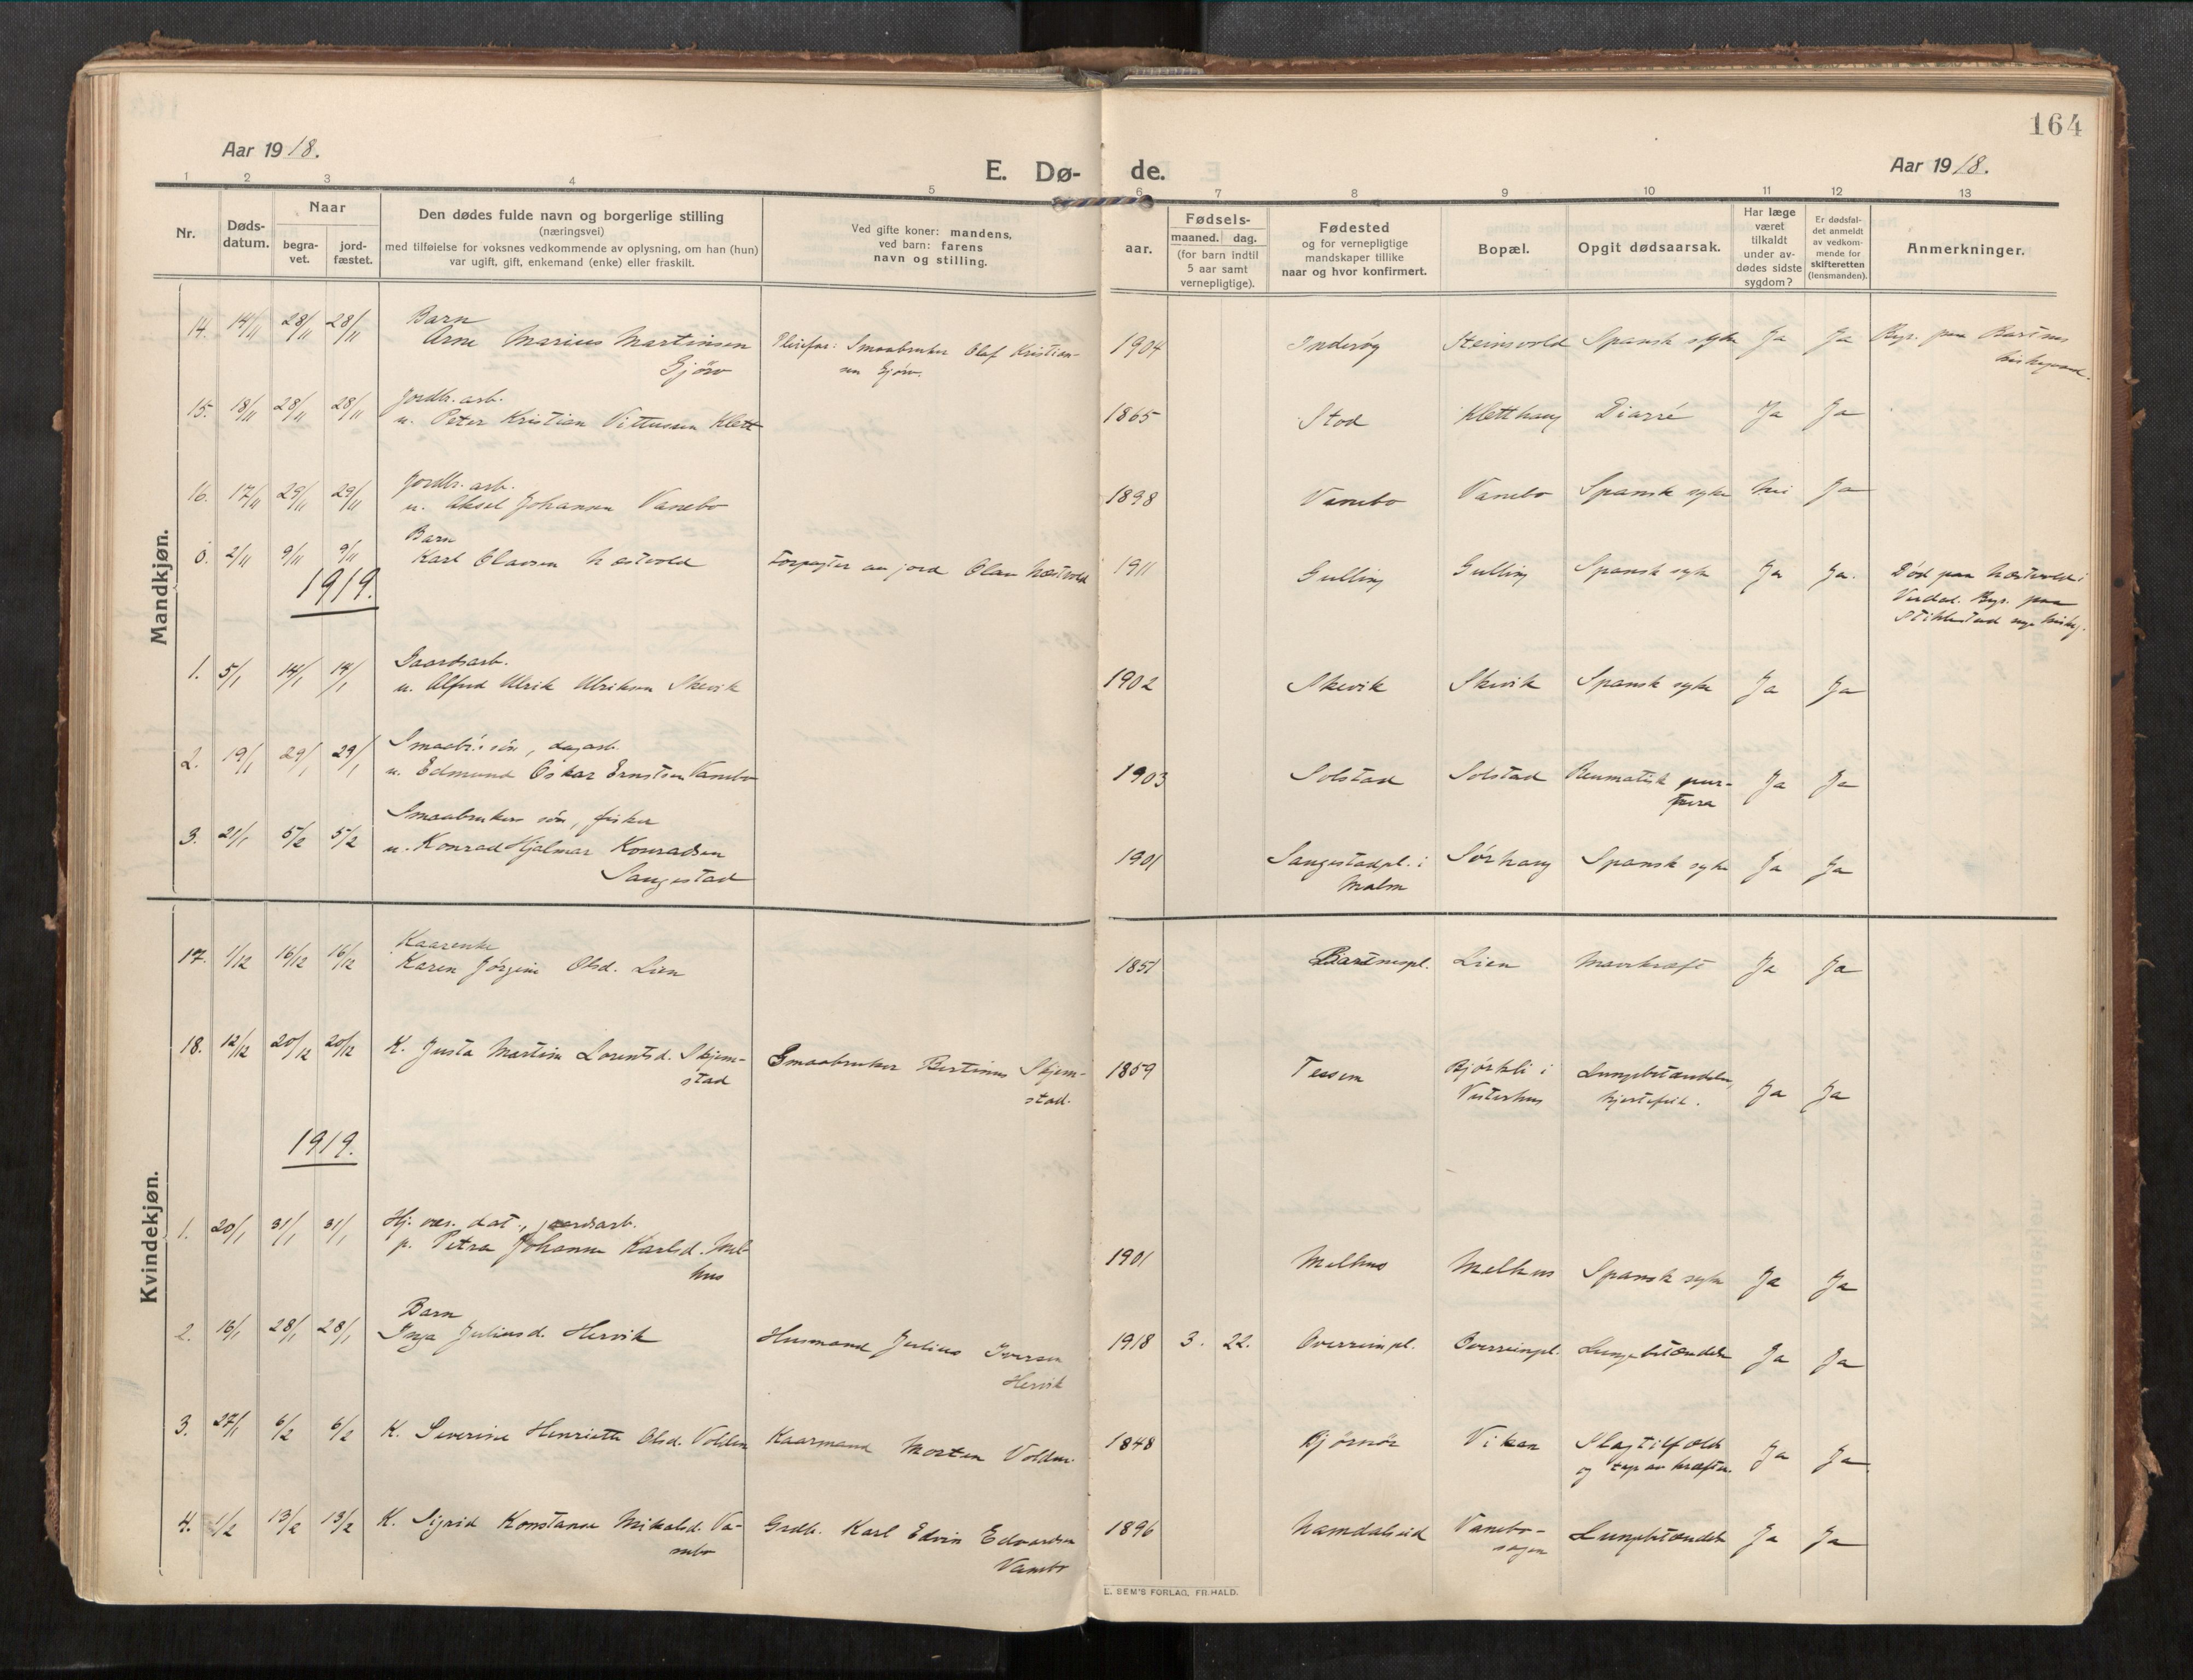 164
Aar 1918.
E. Dø- de.
Aar 1918.
1 2 3 4 5 6 7 8 9 10 11 12 13
Nr.
Døds-
datum.
Naar
begra-
vet.
jord-
fæstet.
Den dødes fulde navn og borgerlige stilling
(næringsvei)
med tilføielse for voksnes vedkommende av oplysning, om han (hun)
var ugift, gift, enkemand (enke) eller fraskilt.
Ved gifte koner: mandens,
ved barn: farens
navn og stilling.
aar.
Fødsels-
maaned. dag.
(for barn indtil
5 aar samt
vernepligtige).
Fødested
og for vernepligtige
mandskaper tillike
naar og hvor konfirmert.
Bopæl.
Opgit dødsaarsak.
Har læge
været
tilkaldt
under av-
dødes sidste
sygdom?
Er dødsfal-
det anmeldt
av vedkom-
mende for
skifteretten
(lensmanden).
Anmerkninger.
Mandkjøn.
Barn
14. 14/11 28/11 28/11 Arne Marius Martinsen Pleiefar: Smaabruker Olaf Kristian- 1904 Inderøy Steinsvold Spansk syke Ja Ja Begr. paa Bartnes
Gjørv sen Gjørv. kirkegaard.
Jordbr. arb.
15. 18/11 28/11 28/11 u. Peter Kristian Klett 1865 Stod Kletthaug Diarré Ja Ja
Jordbr. arb.
16. 17/11 29/11 29/11 u. Aksel Johansen Vanebo 1898 Vanebo Vanebo Spansk syke Nei Ja
Barn
0. 2/11 9/11 9/11 Karl Olavsen Næstvold Forpagter av jord Olav Næstvold 1911 Gulling Gulling Spansk syke Ja Ja. Død paa Næstvold i
Verdal. Begr. paa
Stiklestad nye kirkeg.
1919.
Gaardsarb.
1. 5/1 14/1 14/1 u. Alfred Ulrik Ulriksen Skevik 1902 Skevik Skevik Spansk syke Ja Ja
Smaabr.s søn, dagarb.
2. 19/1 29/1 29/1 u. Edmund Oskar Ernstsen Vanebo 1903 Solstad Solstad Reumatisk pur-
pura Ja Ja
Smaabrukers søn, fisker
3. 21/1 5/2 5/2 u. Konrad Hjalmar Konradsen 1901 Saugestadpl. i Sørhaug Spansk syke Ja Ja
Saugestad Malm
Kvindekjøn.
Kaarenke
17. 1/12 16/12 16/12 Karen Jørgine Olsd. Lien 1851 Bartnespl. Lien Mavekræft Ja Ja
18. 12/12 20/12 20/12 K. Justa Martine Lorentsd. Skjem- Smaabruker Bertinus Skjem- 1859 Tessem Bjørkli i Lungebetændelse,
stad stad. Vesterhus hjertefeil. Ja Ja
1919.
Hj. vær. dat., gaardsarb.
1. 20/1 31/1 31/1 p. Petra Johanne Karlsd. Mel- 1901 Melhus Melhus Spansk syke Ja Ja
hus
Barn
2. 16/1 28/1 28/1 Inga Juliusd. Hervik Husmand Julius Iversen 1918 3. 22. Overreinpl. Overreinpl. Lungebetændelse Ja Ja
Hervik
3. 27/1 6/2 6/2 K. Severine Henriette Olsd. Volden Kaarmand Morten Volden. 1848 Bjørnør Vikan Slagtilfælde Ja Ja
og tap av kræfter.
4. 1/2 13/2 13/2 K. Sigrid Konstanse Mikalsd. Va- Grdb. Karl Edvin Edvardsen 1896 Namdalseid Vanebo- Lungebetændelse Ja Ja
nebo Vanebo sagen
E. SEM'S FORLAG, FR.HALD.